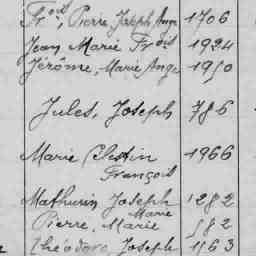 Frois, Pierre Joseph Ange 1706
Jean Marie Frois 1924
Jérôme, Marie Ange 1950
Jules, Joseph 786
Marie Célestin 1966
François
Mathurin Joseph 1282
Marie
Pierre, Marie 582
Théodore, Joseph 1163